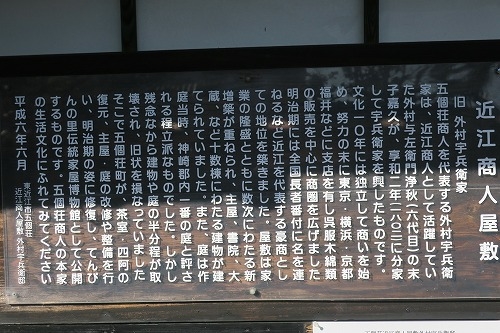 近江商人屋敷
旧 外村宇兵衛家
五個荘商人を代表する外村宇兵衛
家は、近江商人として活躍してい
た外村与左衛門浄秋(六代目)の末
子嘉久が、享和二年(一八〇二)に分家
して宇兵衛家を興したものです。
文化一〇年には独立して商いを始
め、努力の末に東京、横浜、京都
福井などに支店を有し呉服木綿類
の販売を中心に商圏を広げました
明治期には全国長者番付に名を連
ねるなど近江を代表する豪商とし
ての地位を築きました。屋敷は家
業の隆盛とともに数次にわたる新
増築が重ねられ、主屋、書院、大
蔵、など十数棟にわたる建物が建
てられていました。また、庭は作
庭当時、神崎郡内一番の庭と評さ
れる程立派なものでした。しかし
残念ながら建物や庭の半分程が取
壊され、旧状を損なっていました
そこで五個荘町が、茶室・四阿の
復元、主屋、庭の改修や整備を行
い、明治期の姿に修復し、てんび
んの里伝統家屋博物館として公開
するものです。五個荘商人の本家
の生活文化にふれてみてください
平成六年六月
東近江市五個荘
近江商人屋敷 外村宇兵衛邸